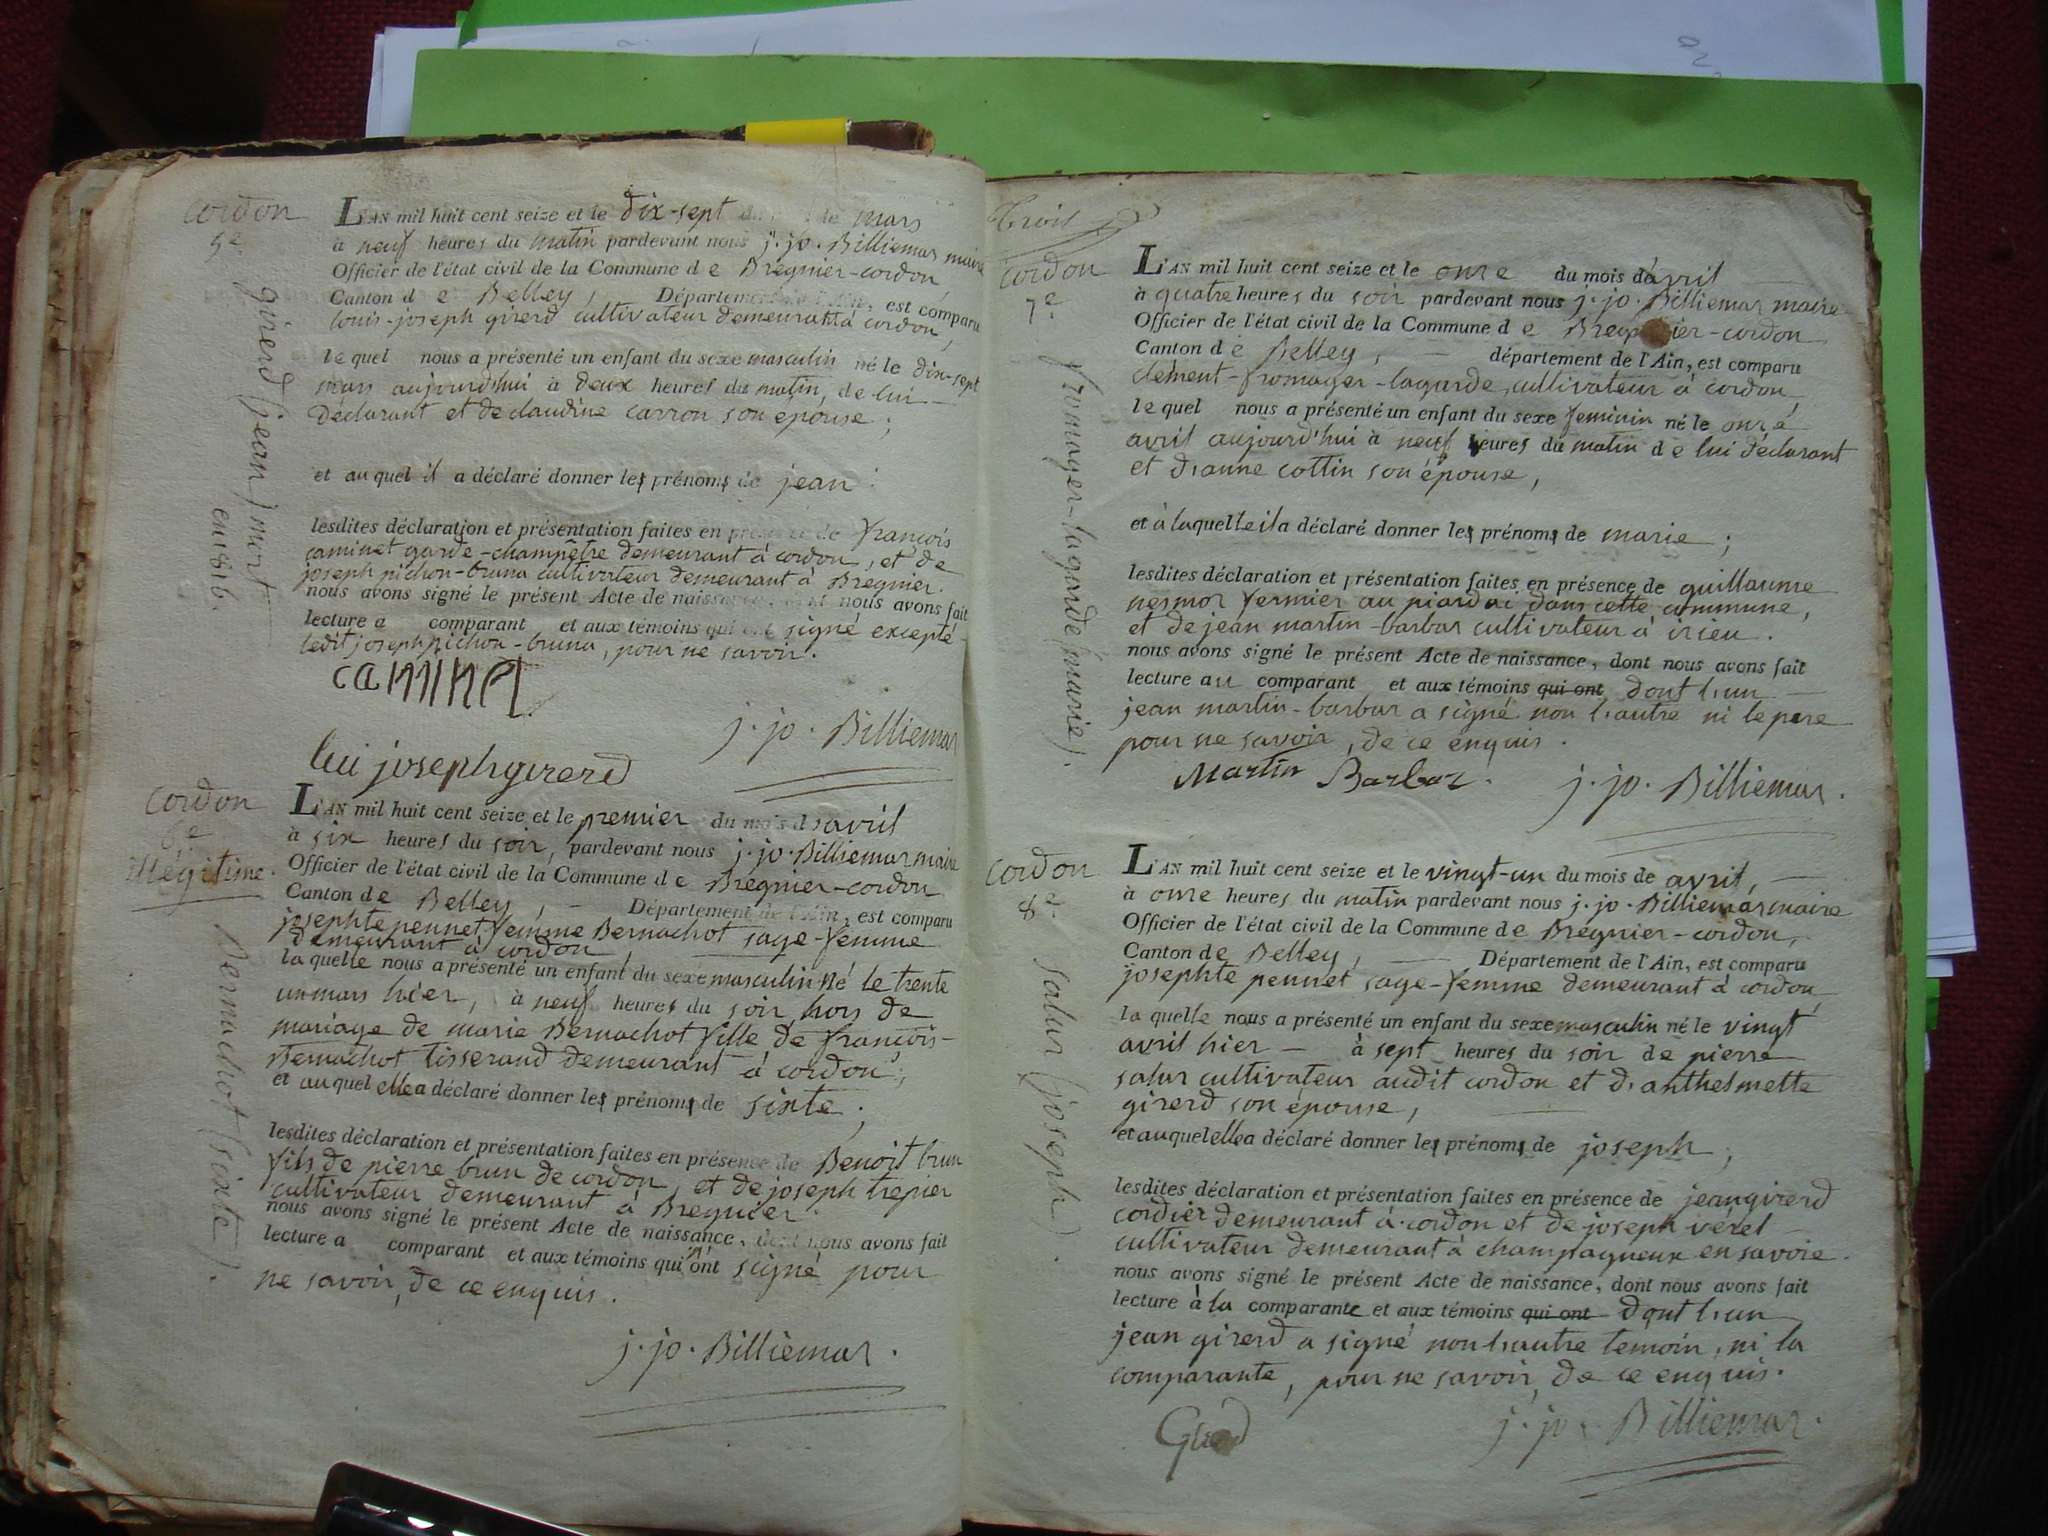 cordon
5e
girerd (jean) mort
en 1816.
L'AN mil huit cent seize et le dix-sept du de mars
à neuf heures du matin pardevant nous j. jo. Billiemar maire
Officier de l'état civil de la Commune d e Bregnier-cordon
Canton d e Belley, Département de l'Ain, est comparu
louis-joseph girerd cultivateur demeurant à cordon,
le quel nous a présenté un enfant du sexe masculin né le dix-sept
mars aujourd'hui à deux heures du matin, de lui
Déclarant et de claudine carron son epouse ;
et au quel il a déclaré donner les prénoms de jean .
lesdites déclaration et présentation faites en présence de françois
caminet garde-champêtre demeurant à cordon, et de
joseph pichon-bruna cultivateur demeurant à Bregnier.
nous avons signé le présent Acte de naissance, dont nous avons fait
lecture a comparant et aux témoins qui ont signé excepté
ledit joseph pichon-bruna, pour ne savoir.
caminet
j. jo. Billiemar
lui joseph girerd
cordon
6e
illégitime.
Bernachot (sixte).
L'AN mil huit cent seize et le premier du mois d'avril
à six heures du soir, pardevant nous j. jo. Billiemar maire
Officier de l'état civil de la Commune d e Bregnier-cordon
Canton de Belley, Département de l'Ain, est comparu
josephte pennet femme Bernachot sage-femme
demeurant à cordon,
la quelle nous a présenté un enfant du sexe masculin né le trente
un mars hier, à neuf heures du soir hors de
mariage de marie Bernachot fille de françois-
Bernachot tisserand demeurant à cordon ;
et au quel elle a déclaré donner les prénoms de sixte ;
lesdites déclaration et présentation faites en présence de Benoit brun
fils de pierre brun de cordon, et de joseph trepier
cultivateur demeurant à Bregnier.
nous avons signé le présent Acte de naissance, dont nous avons fait
lecture a comparant et aux témoins qui n'ont signé pour
ne savoir, de ce enquis.
j. jo. Billiemar.
Trois
cordon
7e
fromager-lagarde (marie).
L'AN mil huit cent seize et le onze du mois d'avril
à quatre heures du soir pardevant nous j. jo. Billiemar maire
Officier de l'état civil de la Commune d e Bregnier-cordon
Canton d e Belley, département de l'Ain, est comparu
clement-fromager-lagarde, cultivateur à cordon,
le quel nous a présenté un enfant du sexe feminin né le onze
avril aujourd'hui à neuf heures du matin de lui déclarant
et d'anne cottin son épouse,
et à laquelle il a déclaré donner les prénoms de marie ;
lesdites déclaration et présentation faites en présence de guillaume
nesmoz fermier au dans cette commune,
et de jean martin-barbar cultivateur à irieu.
nous avons signé le présent Acte de naissance, dont nous avons fait
lecture au comparant et aux témoins qui ont dont l'un
jean martin-barbar a signé non l'autre ni le pere
pour ne savoir, de ce enquis.
Martin Barbar. j. jo. Billiemar.
cordon
8e
salur (joseph).
L'AN mil huit cent seize et le vingt-un du mois de avril,
à onze heures du matin pardevant nous j. jo. Billiemar maire
Officier de l'état civil de la Commune de Bregnier-cordon,
Canton de Belley, Département de l'Ain, est comparu
josephte pennet sage-femme demeurant à cordon,
la quelle nous a présenté un enfant du sexe masculin né le vingt
avril hier à sept heures du soir de pierre
salur cultivateur audit cordon et d'anthelmette
girerd son épouse,
et auquel elle a déclaré donner les prénoms de joseph ;
lesdites déclaration et présentation faites en présence de jean girerd
cordier demeurant à cordon et de joseph vérel
cultivateur demeurant à champagneux en savoie.
nous avons signé le présent Acte de naissance, dont nous avons fait
lecture à la comparante et aux témoins qui ont dont l'un
jean girerd a signé non l'autre temoin, ni la
comparante, pour ne savoir, de ce enquis.
Girerd j. jo. Billiemar.